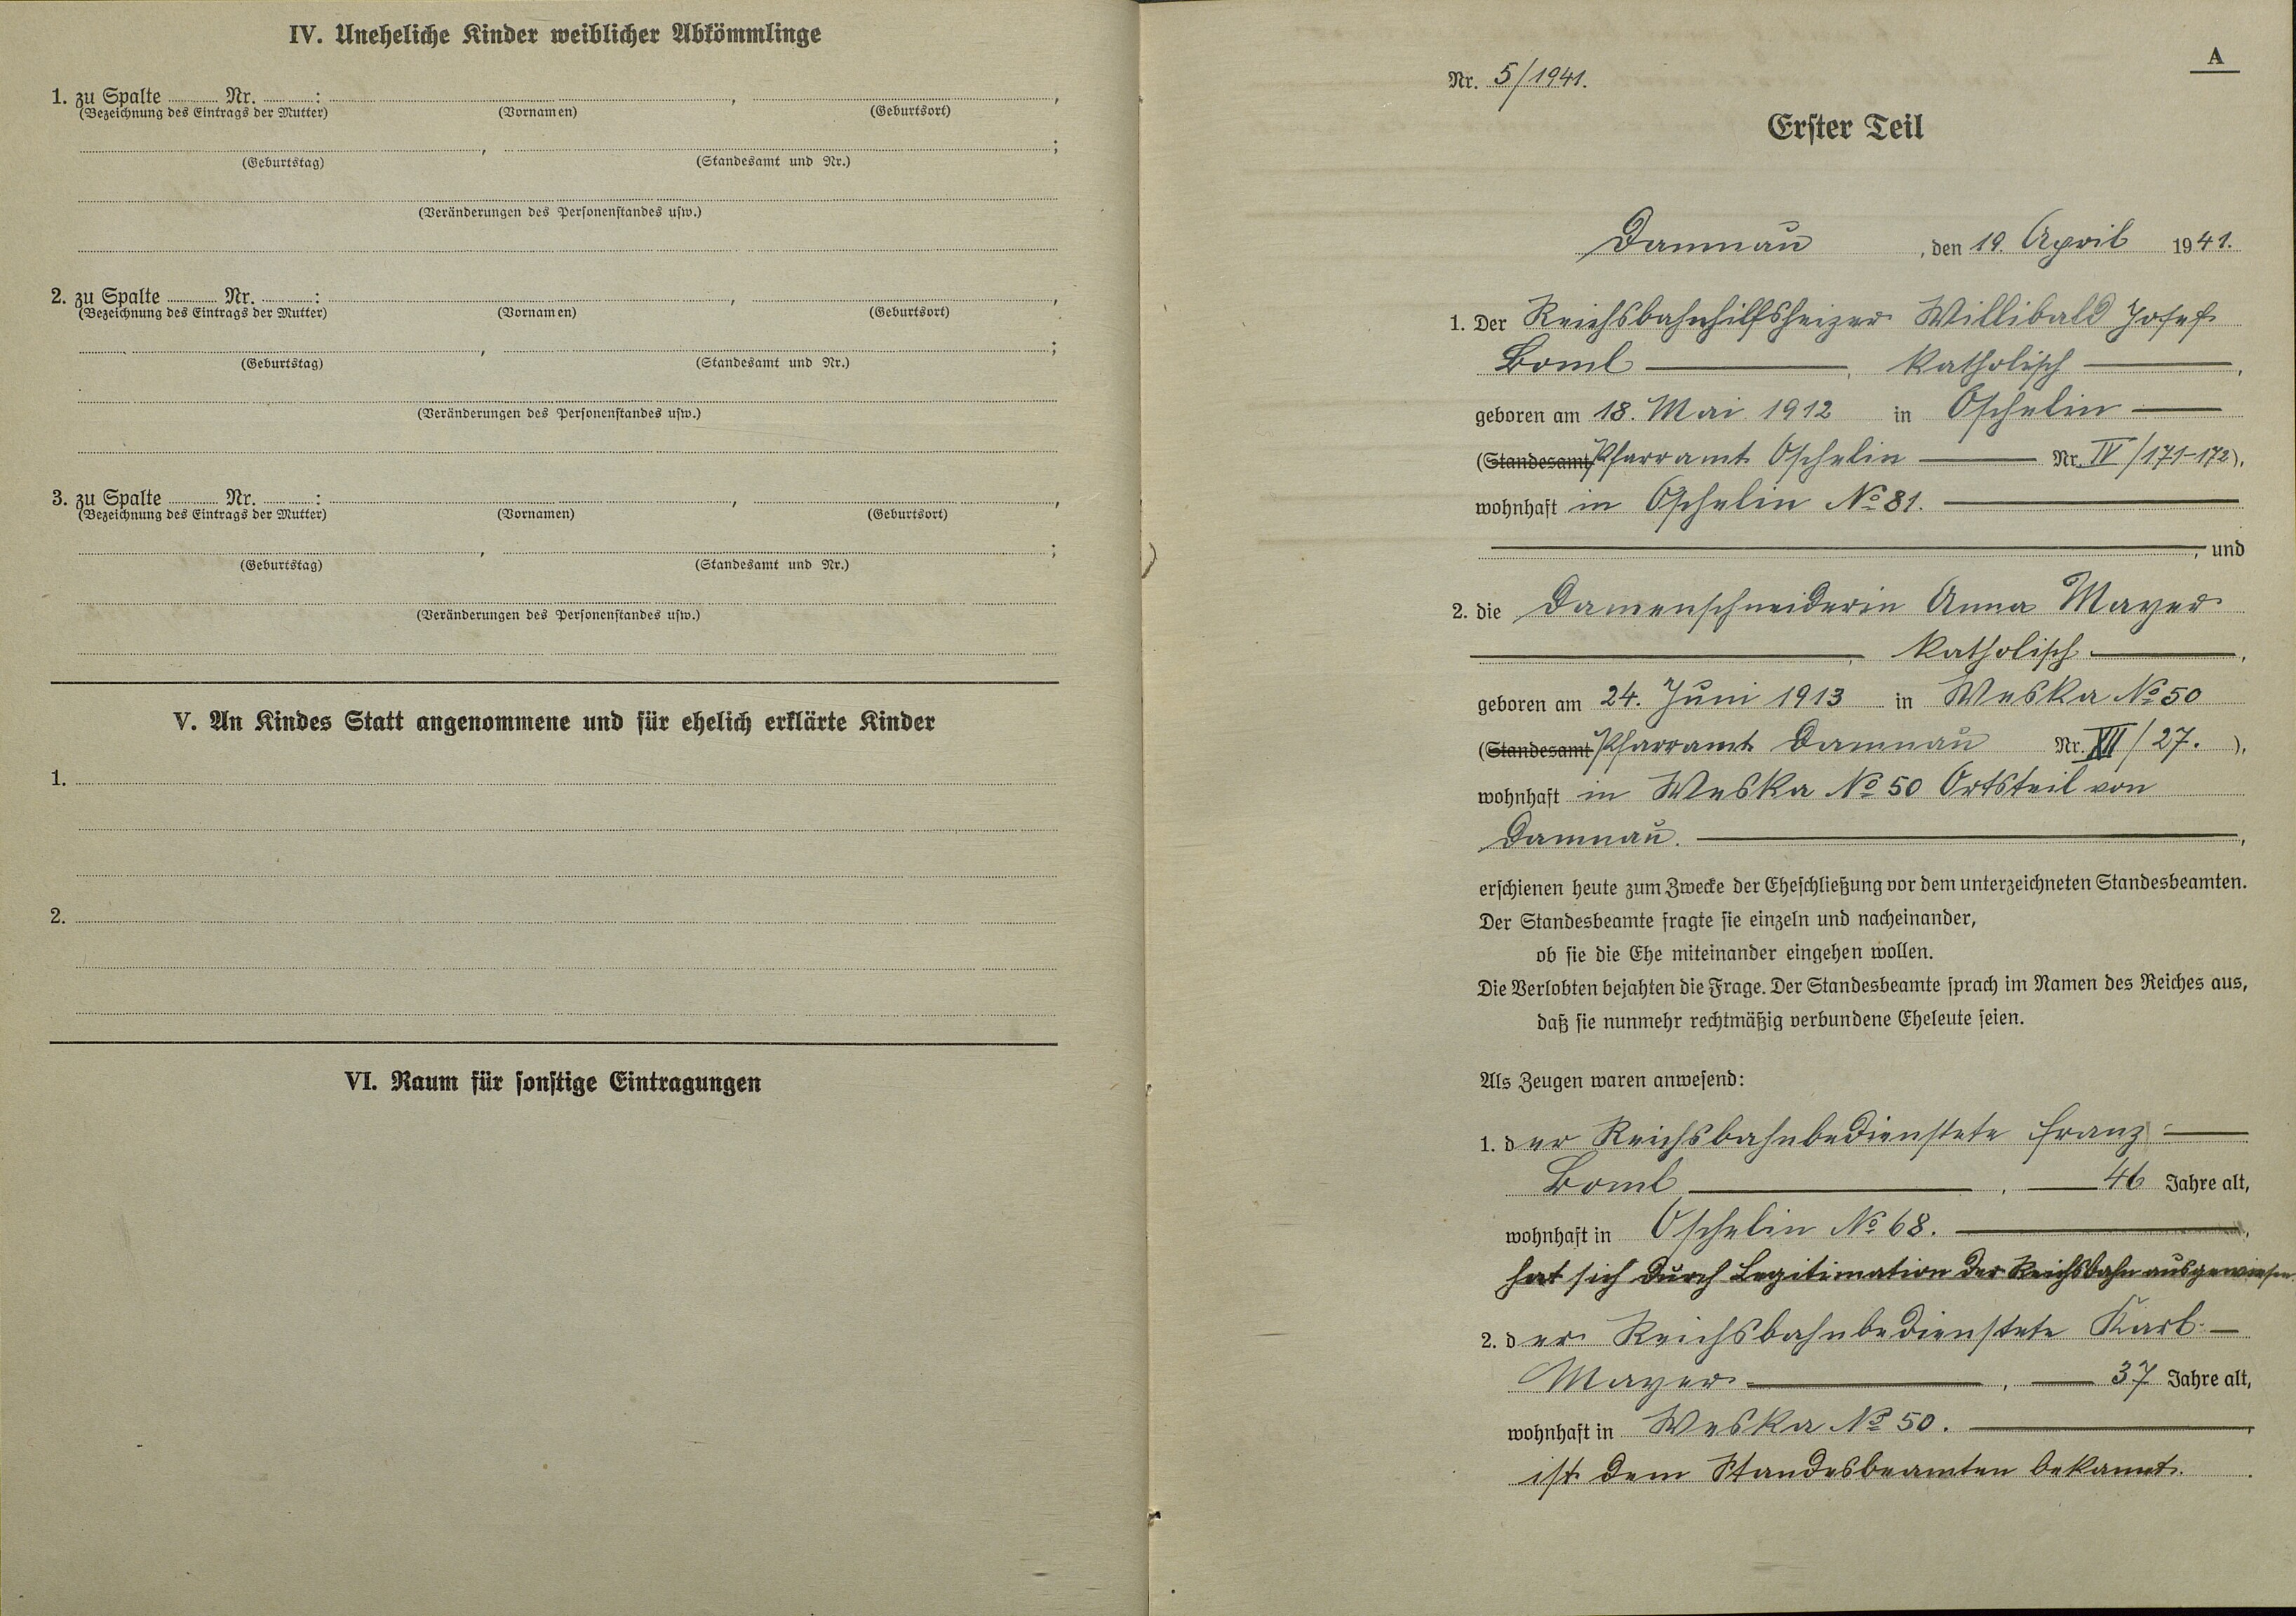 IV. Uneheliche Kinder weiblicher Abkömmlinge
1. zu Spalte Nr. : , ,
(Bezeichnung des Eintrags der Mutter) (Vornamen) (Geburtsort)
, ;
(Geburtstag) (Standesamt und Nr.)
(Veränderungen des Personenstandes usw.)
2. zu Spalte Nr. : , ,
(Bezeichnung des Eintrags der Mutter) (Vornamen) (Geburtsort)
, ;
(Geburtstag) (Standesamt und Nr.)
(Veränderungen des Personenstandes usw.)
3. zu Spalte Nr. : , ,
(Bezeichnung des Eintrags der Mutter) (Vornamen) (Geburtsort)
, ;
(Geburtstag) (Standesamt und Nr.)
(Veränderungen des Personenstandes usw.)
V. An Kindes Statt angenommene und für ehelich erklärte Kinder
1.
2.
VI. Raum für sonstige Eintragungen
A
Nr. 5/1941.
Erster Teil
Damnau, den 19. April 1941.
1. Der Reichsbahnhilfsheizer Willibald Josef
Boml, katholisch,
geboren am 18. Mai 1912 in Oschelin
(Standesamt Pfarramt Oschelin Nr. IV/171-172),
wohnhaft in Oschelin No 81.
, und
2. die Damenschneiderin Anna Mayer
, katholisch,
geboren am 24. Juni 1913 in Weska No 50
(Standesamt Pfarramt Damnau Nr. XII/27.),
wohnhaft in Weska No 50 Ortsteil von
Damnau.,
erschienen heute zum Zwecke der Eheschließung vor dem unterzeichneten Standesbeamten.
Der Standesbeamte fragte sie einzeln und nacheinander,
ob sie die Ehe miteinander eingehen wollen.
Die Verlobten bejahten die Frage. Der Standesbeamte sprach im Namen des Reiches aus,
daß sie nunmehr rechtmäßig verbundene Eheleute seien.
Als Zeugen waren anwesend:
1. der Reichsbahnbedienstete Franz
Boml, 46 Jahre alt,
wohnhaft in Oschelin No 68.,
hat sich durch Legitimation der Reichsbahn ausgewiesen.
2. der Reichsbahnbedienstete Karl
Mayer, 37 Jahre alt,
wohnhaft in Weska No 50.,
ist dem Standesbeamten bekannt.